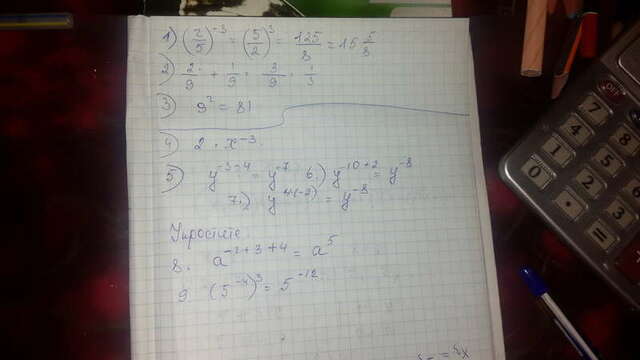 1) (2/5)⁻³ = (5/2)³ = 125/8 = 15 5/8
2) 2/9 + 1/9 = 3/9 = 1/3
3) 9² = 81
4) 2 · x⁻³
5) y⁻³⁻⁴ = y⁻⁷ 6.) y⁻¹⁰⁺² = y⁻⁸
7.) y⁴⁽⁻²⁾ = y⁻⁸
Упростите
8. a⁻²⁺³⁺⁴ = a⁵
9 (5⁻⁴)³ = 5⁻¹²